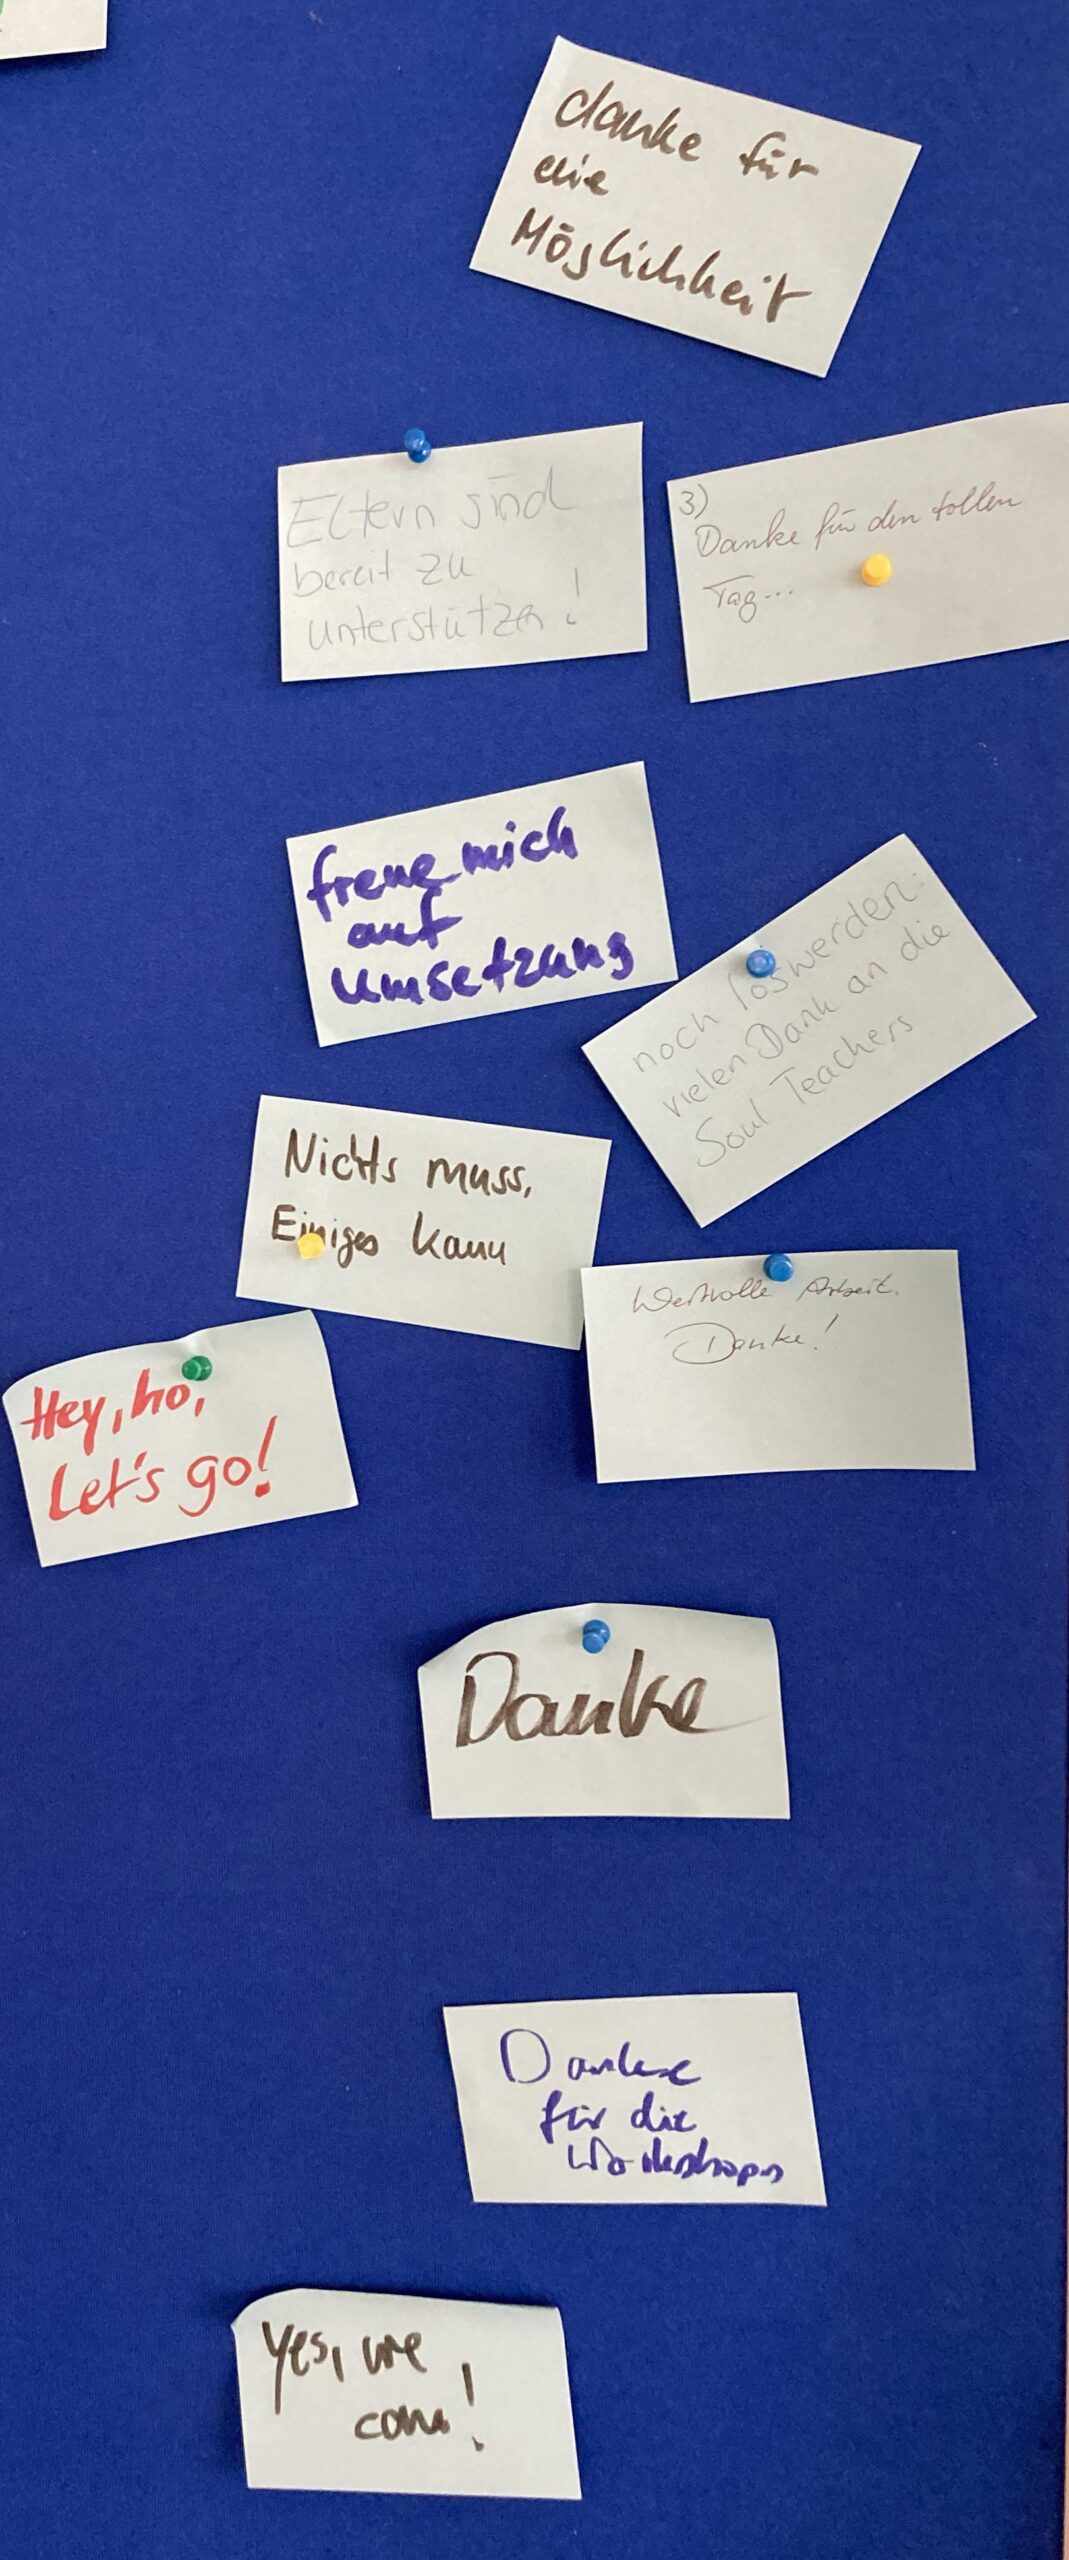 danke für
die
Möglichkeit
Eltern sind
bereit zu
unterstützen!
3)
Danke für den tollen
Tag...
freue mich
auf
Umsetzung
noch loswerden:
vielen Dank an die
Soul Teachers
Nichts muss,
Einiges kann
Wertvolle Arbeit.
Danke!
Hey, ho,
Let's go!
Danke
Danke
für die
Workshops
Yes, we
can!